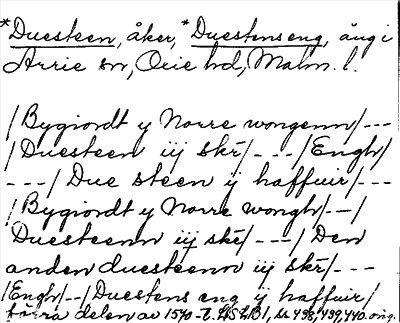 *Duesteen, åker, *Duestens eng, äng i
Arrie sn, Oxie hd, Malm. l.
/Bygiordt y Norre wongenn/---
/Duesteen iij skr/---/Engh/
---/Due steen ij haffuir/---
/Bygiordt y Norre wongh/--/
Duesteenn iij skr/---/Den
anden duesteenn iij skr/---
/Engh/--/Duestens eng ij haffuir/
förra delen av 1570-t.